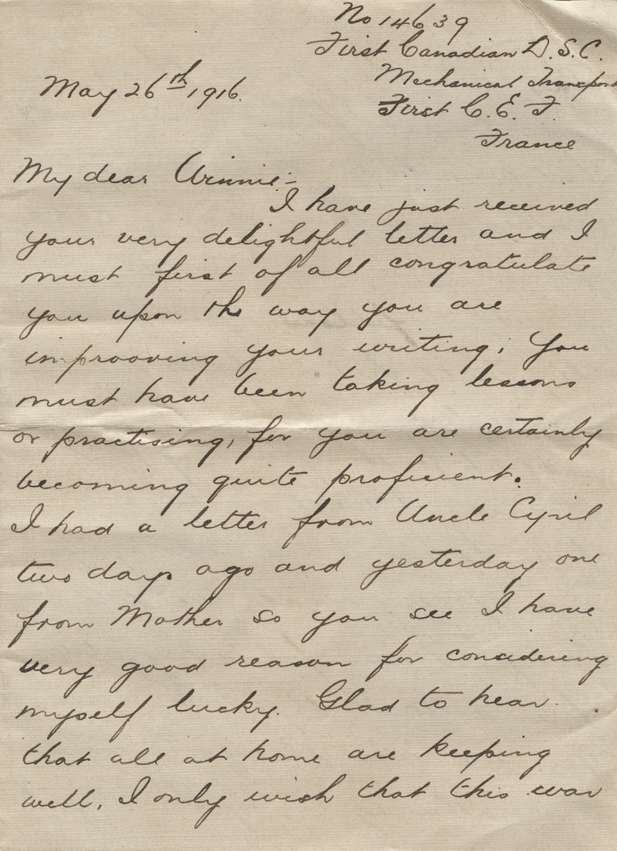 No 14639
First Canadian D. S. C.
Mechanical Transport
First C. E. F.
France
May 26th 1916.
My dear Winnie:-
I have just received
your very delightful letter and I
must first of all congratulate
you upon the way you are
improoving your writing, You
must have been taking lessons
or practising, for you are certainly
becoming quite proficient.
I had a letter from Uncle Cyril
two days ago and yesterday one
from Mother so you see I have
very good reason for considering
myself lucky. Glad to hear
that all at home are keeping
well, I only wish that this war